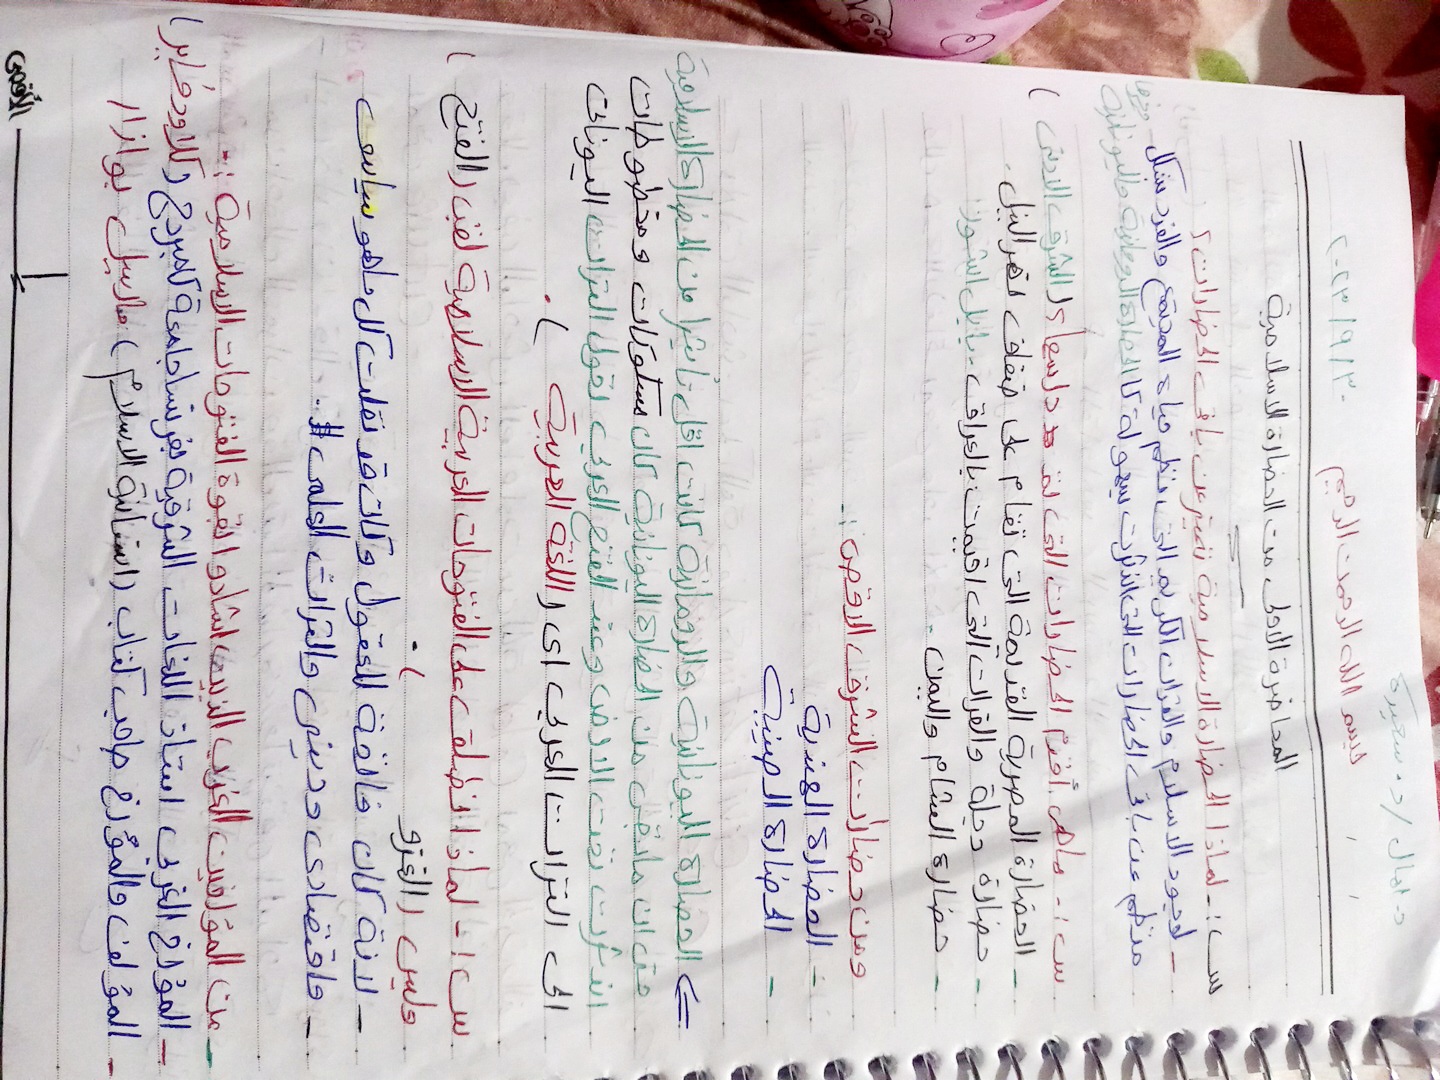 د. امال / د. سعيدة
بسم الله الرحمن الرحيم ٢٠٢٣/٩/٣٠
المحاضرة الاولى من الحضارة الاسلامية
س :- لماذا الحضارة الاسلامية تتميز عن باقى الحضارات ؟
- لوجود الاسلام والقران الكريم التى تنظم حياة المجتمع والفرد بشكل
منظم عن باقى الحضارات التى اندثرت بسهولة كا الحضارة الرومانية واليونانية وغيرها
س :- ماهى أقدم الحضارات التى تم دراستها ؟ ( الشرق الادنى )
- الحضارة المصرية القديمة التى تقام على ضفاف نهر النيل .
- حضارة دجلة والفرات التى اقيمت بالعراق - بابل اشور
- حضارة الشام واليمن .
ومن حضارات الشرق الاقصى :-
- الحضارة الهندية
- الحضارة الصينية
<= الحضارة اليونانية والرومانية كانت اقل تأيثرا من الحضارة الاسلامية
حتى ان ماتبقى من الحضارة اليونانية كان مسكوكات ومخطوطات
اندثرت تحت الارض وعند الفتح العربي تحول التراث اليونانى
الى التراث العربي اى ( اللغة العربية ) .
س :- لماذا نطلق على الفتوحات العربية الاسلامية لقب ( الفتح )
وليس ( الغزو ) .
- لانة كان فاتحة للعقول وكان قد نقلت كل ماهو سياسى
- واقتصادى ودينى والتراث العلمى .
- من المؤلفين الغرب الذين اشادوا بقوة الفتوحات الاسلامية :-
- المؤرخ الغربي استاذ اللغات الشرقية بفرنسا جامعة كامبردج ( كلاود فراير )
- المؤلف والمؤرخ صاحب كتاب ( انسانية الاسلام ) مارسيل بوازار
الأقصى